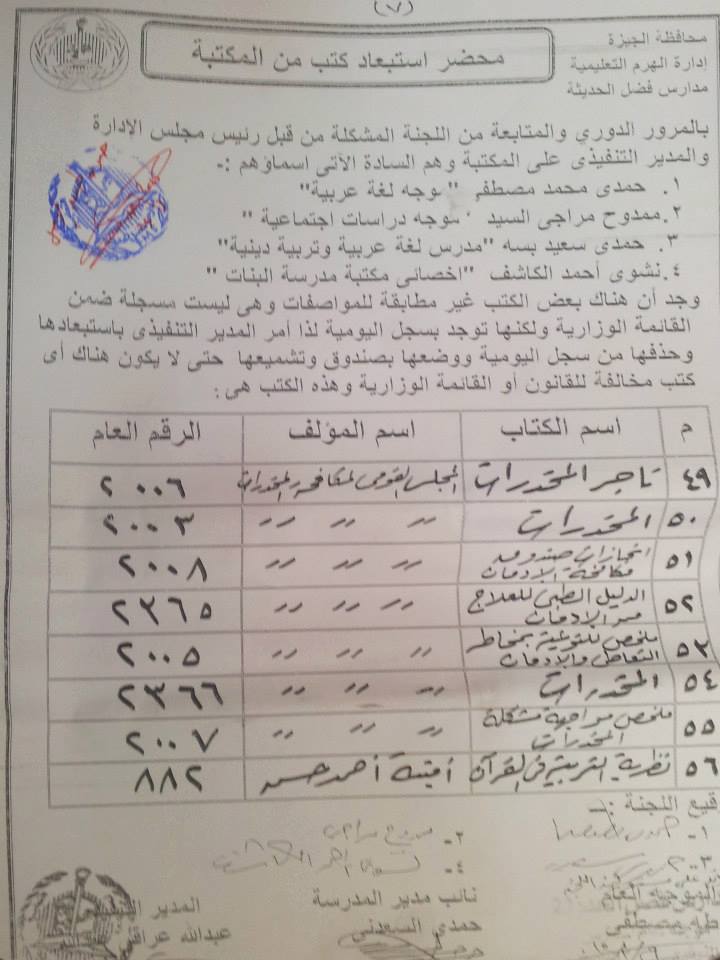 (٧)
محافظة الجيزة
إدارة الهرم التعليمية
مدارس فضل الحديثة
محضر استبعاد كتب من المكتبة
بالمرور الدوري والمتابعة من اللجنة المشكلة من قبل رئيس مجلس الإدارة
والمدير التنفيذى على المكتبة وهم السادة الآتى اسماؤهم :-
١. حمدى محمد مصطفى "موجه لغة عربية"
٢.ممدوح مراجى السيد "موجه دراسات اجتماعية "
٣. حمدى سعيد بسه "مدرس لغة عربية وتربية دينية"
٤.نشوى أحمد الكاشف "اخصائى مكتبة مدرسة البنات "
وجد أن هناك بعض الكتب غير مطابقة للمواصفات وهى ليست مسجلة ضمن
القائمة الوزارية ولكنها توجد بسجل اليومية لذا أمر المدير التنفيذى باستبعادها
وحذفها من سجل اليومية ووضعها بصندوق وتشميعها حتى لا يكون هناك أى
كتب مخالفة للقانون أو القائمة الوزارية وهذه الكتب هى :
م اسم الكتاب اسم المؤلف الرقم العام
٤٩ تاجر المخدرات المجلس القومى لمكافحة المخدرات ٢٠٠٦
٥٠ المخدرات " " " ٢٠٠٣
٥١ انجازات صندوق مكافحة الإدمان " " " ٢٠٠٨
٥٢ الدليل الطبى للعلاج من الإدمان " " " ٢٣٦٥
٥٣ ملخص للتوعية بمخاطر التعاطى والإدمان " " " ٢٠٠٥
٥٤ المخدرات " " " ٢٣٦٦
٥٥ ملخص مواجهة مشكلة المخدرات " " " ٢٠٠٧
٥٦ نظرية التربية فى القرآن أمينة أحمد حسن ٨٨٢
قيع اللجنة :
١-
٢- ممدوح مراجى
٣-
٤- نشوى أحمد الكاشف
الموجه العام نائب مدير المدرسة المدير
طه مصطفى حمدي السعدني عبدالله عراقى